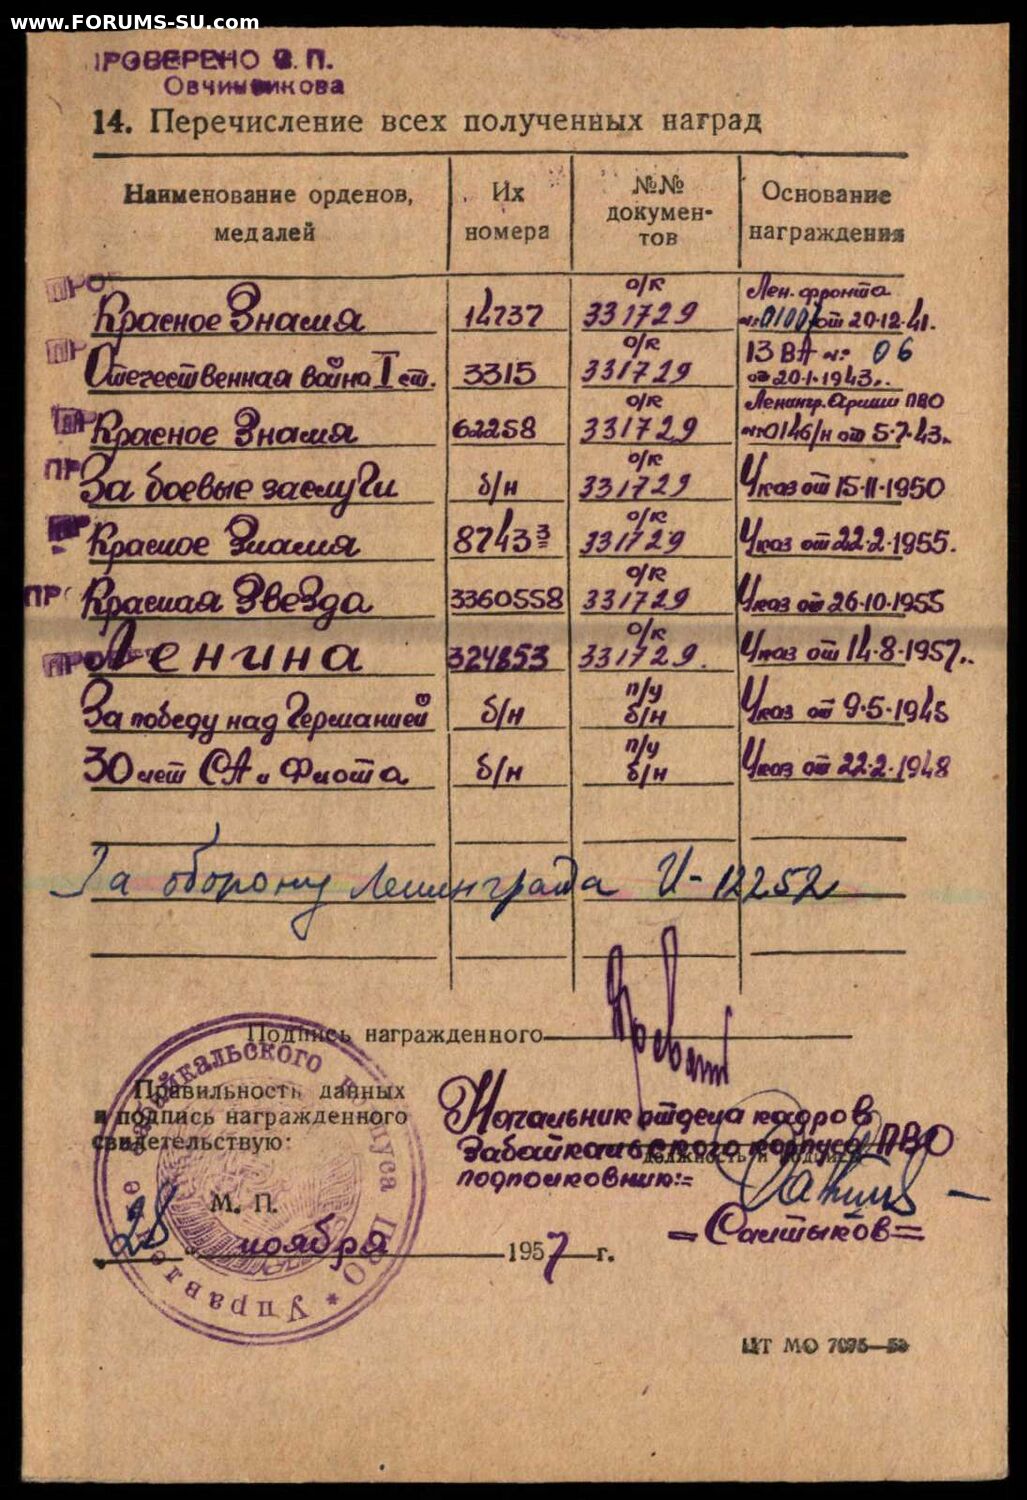 www.FORUMS-SU.com
ПРОВЕРЕНО
Овчинникова
14. Перечисление всех полученных наград
Наименование орденов, медалей
Их номера
№№ документов
Основание награждения
о/к Лен. фронта
Красное Знамя 14737 331729 № 01007 от 20.12.41.
о/к 13 ВА №: 06
Отечественная война I ст. 3315 331729 от 20.1.1943г.
о/к Ленингр. Армии ПВО
Красное Знамя 62258 331729 № 0146/н от 5.7.43г.
о/к
За боевые заслуги б/н 331729 Указ от 15.11.1950
о/к
Красное Знамя 87433 331729 Указ от 22.2.1955.
о/к
ПРО Красная Звезда 3360558 331729 Указ от 26.10.1955
о/к
Ленина 324853 331729. Указ от 14.8.1957г.
п/у
За победу над Германией б/н б/н Указ от 9.5.1945
п/у
30 лет СА и Флота б/н б/н Указ от 22.2.1948
За оборону Ленинграда И-12252
Подпись награжденного
Правильность данных
и подпись награжденного
свидетельствую:
Начальник отдела кадров
Забайкальского корпуса ПВО
должность и подпись
подполковник:=
=Салтыков=
М. П.
28 " ноября 1957 г.
Управление Забайкальского корпуса ПВО *
ЦТ МО 7075—53